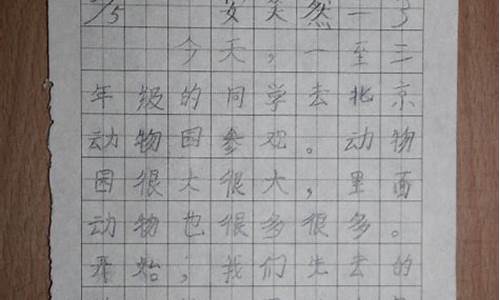 5 安笑然一3
今天，一至三
年级的同学去北京
动物园参观。动物
园很大很大，里面
动物也很多很多。
开始，我们先去的